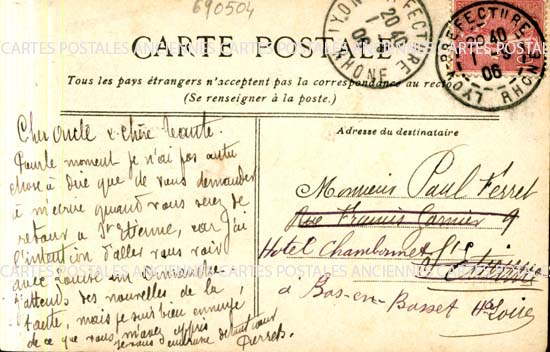 690504
CARTE POSTALE
Tous les pays étrangers n'acceptent pas la correspondance au recto
(Se renseigner à la poste.)
LYON-PREFECTURE
20 40
06
RHONE
LYON-PREFECTURE
20 40
06
RHONE
Cher Oncle & chère Tante.
Pour le moment je n'ai pas autre
chose à dire que de vous demander
à m'écrire quand vous serez de
retour à St Etienne, car j'ai
l'intention d'aller vous voir
avec Louise un Dimanche.
J'attends des nouvelles de la
tante, mais je suis bien ennuyé
de ce que vous m'avez appris
je vous embrasse de tout cœur
Pierre
Adresse du destinataire
Monsieur Paul Ferret
Rue Francis Garnier 9
Hotel Chambonnet St Etienne
à Bas-en-Basset Hte Loire
CARTES POSTALES ANCIENNES